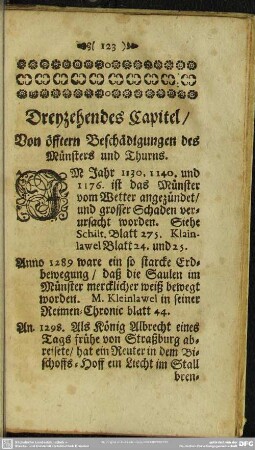 ( 123 )
Dreyzehendes Capitel/
Von öfftern Beschädigungen des
Münsters und Thurns.
M Jahr 1130. 1140. und
1176. ist das Münster
vom Wetter angezündet/
und grosser Schaden ver-
ursacht worden. Siehe
Schilt. Blatt 275. Klain-
lawel Blatt 24. und 25.
Anno 1289 ware ein so starcke Erd-
bewegung / daß die Saulen im
Münster mercklicher weiß bewegt
worden. M. Kleinlawel in seiner
Reimen-Chronic blatt 44.
An. 1298. Als König Albrecht eines
Tags frühe von Straßburg ab-
reisete/ hat ein Reuter in dem Bi-
schoffs-Hoff ein Liecht im Stall
bren-